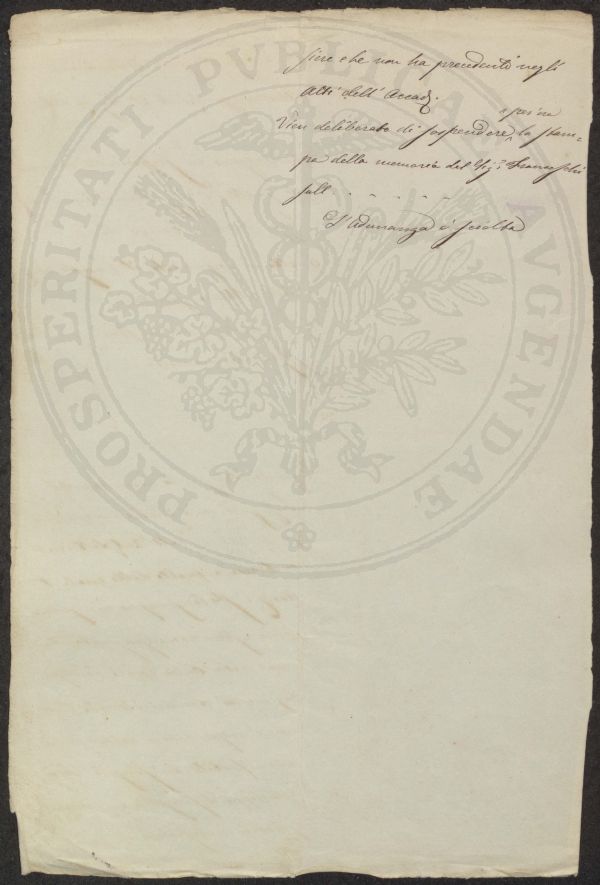 siere che non ha precedenti negli
Atti dell'Accad.
Vien deliberato di sospendere la stam-
pa della memoria del Sig.r Franceschi
sull . . . . . . .
L'Adunanza è sciolta
PROSPERITATI PVBLICAE AVGENDAE